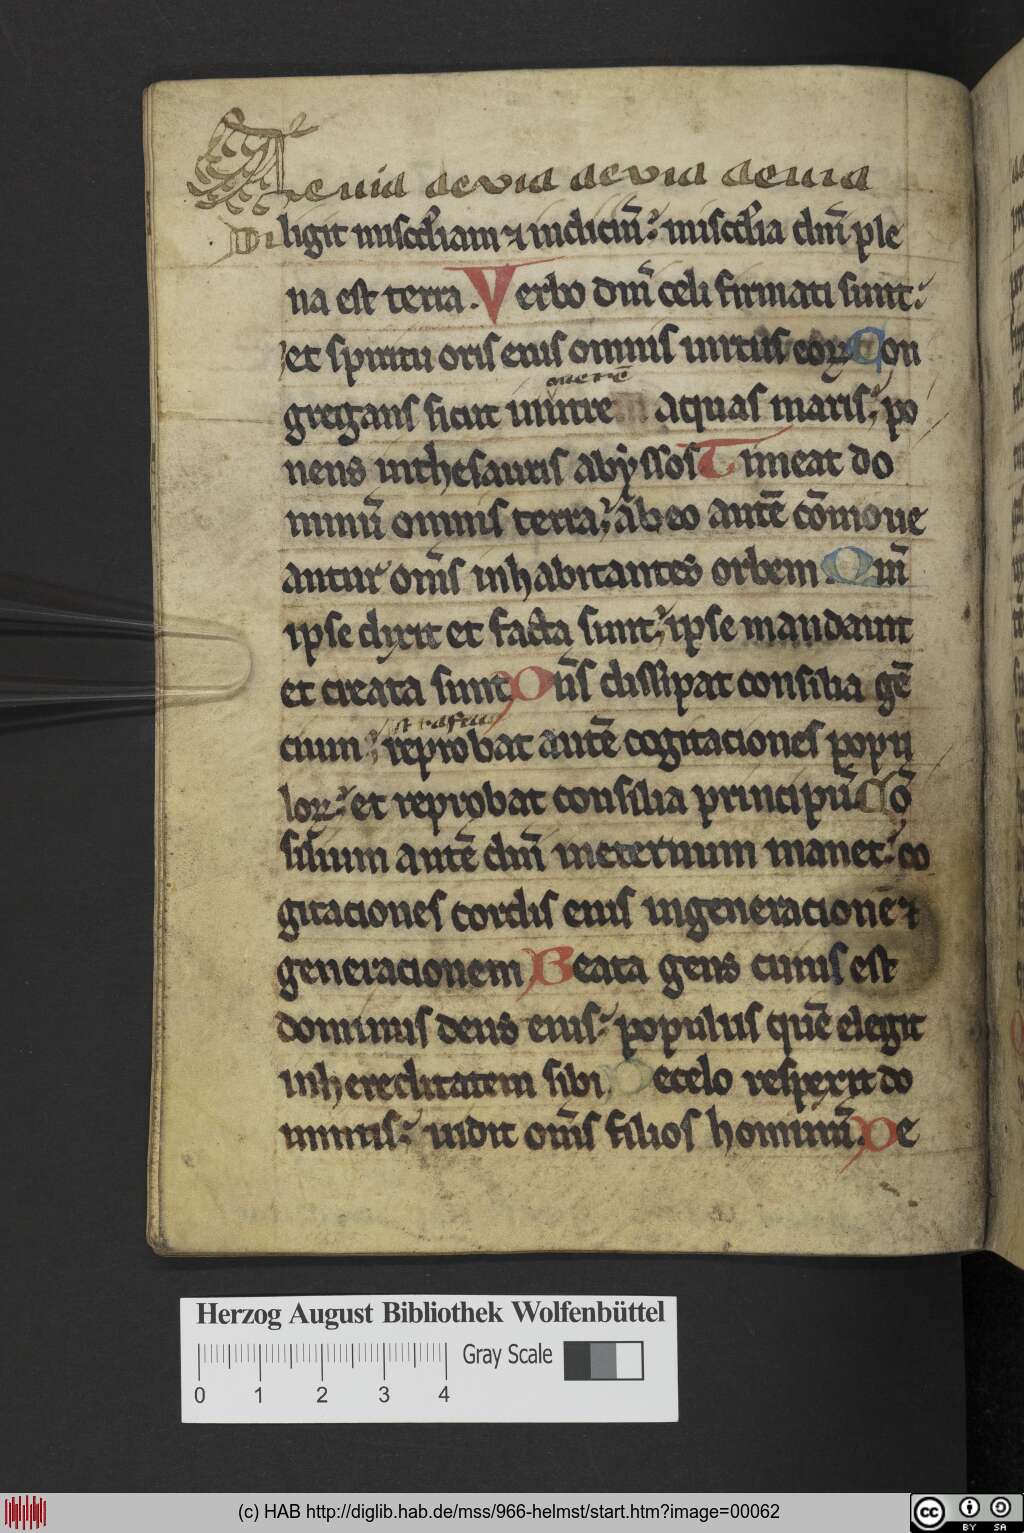 devia devia devia devia
Diligit miscd̅iam ⁊ iudiciu̅: miscd̅ia dm̅i ple
na est terra. Verbo dm̅i celi firmati sunt:
et spiritu oris eius omnis uirtus eoꝝ Con
quere̅
gregans sicut in utre aquas maris: po
nens in thesauris abẏssos Timeat do
minu̅ omnis terra: ab eo aute̅ co̅moue
antur om̅s inhabitantes orbem. Qm̅
ipse dixit et facta sunt: ipse mandauit
et creata sunt Dn̅s dissipat consilia ge̅
cium: reprobat aute̅ cogitaciones popu
loꝝ: et reprobat consilia principu̅ Co̅
silium aute̅ dm̅i in eternum manet: co
gitaciones cordis eius in generacione̅ ⁊
generacionem Beata gens cuius est
dominus deus eius: populus que̅ elegit
in hereditatem sibi De celo respexit do
minus: uidit om̅s filios hominu̅. De
Herzog August Bibliothek Wolfenbüttel
Gray Scale
0 1 2 3 4
(c) HAB http://diglib.hab.de/mss/966-helmst/start.htm?image=00062
cc BY SA